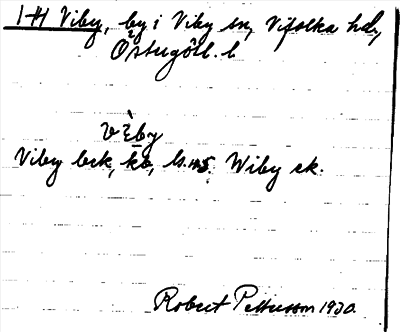 1-H Viby, by i Viby sn, Vifolka hd,
Östergötl. l.
vèby
Viby bsk, ko, ls. 1715. Wiby sk.
Robert Pettersson 1930.